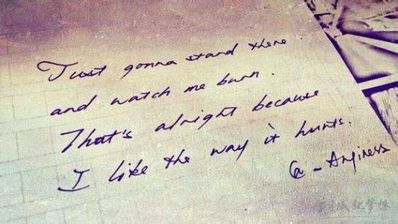 Just gonna stand there
and watch me burn.
That's alright because
I like the way it hurts.